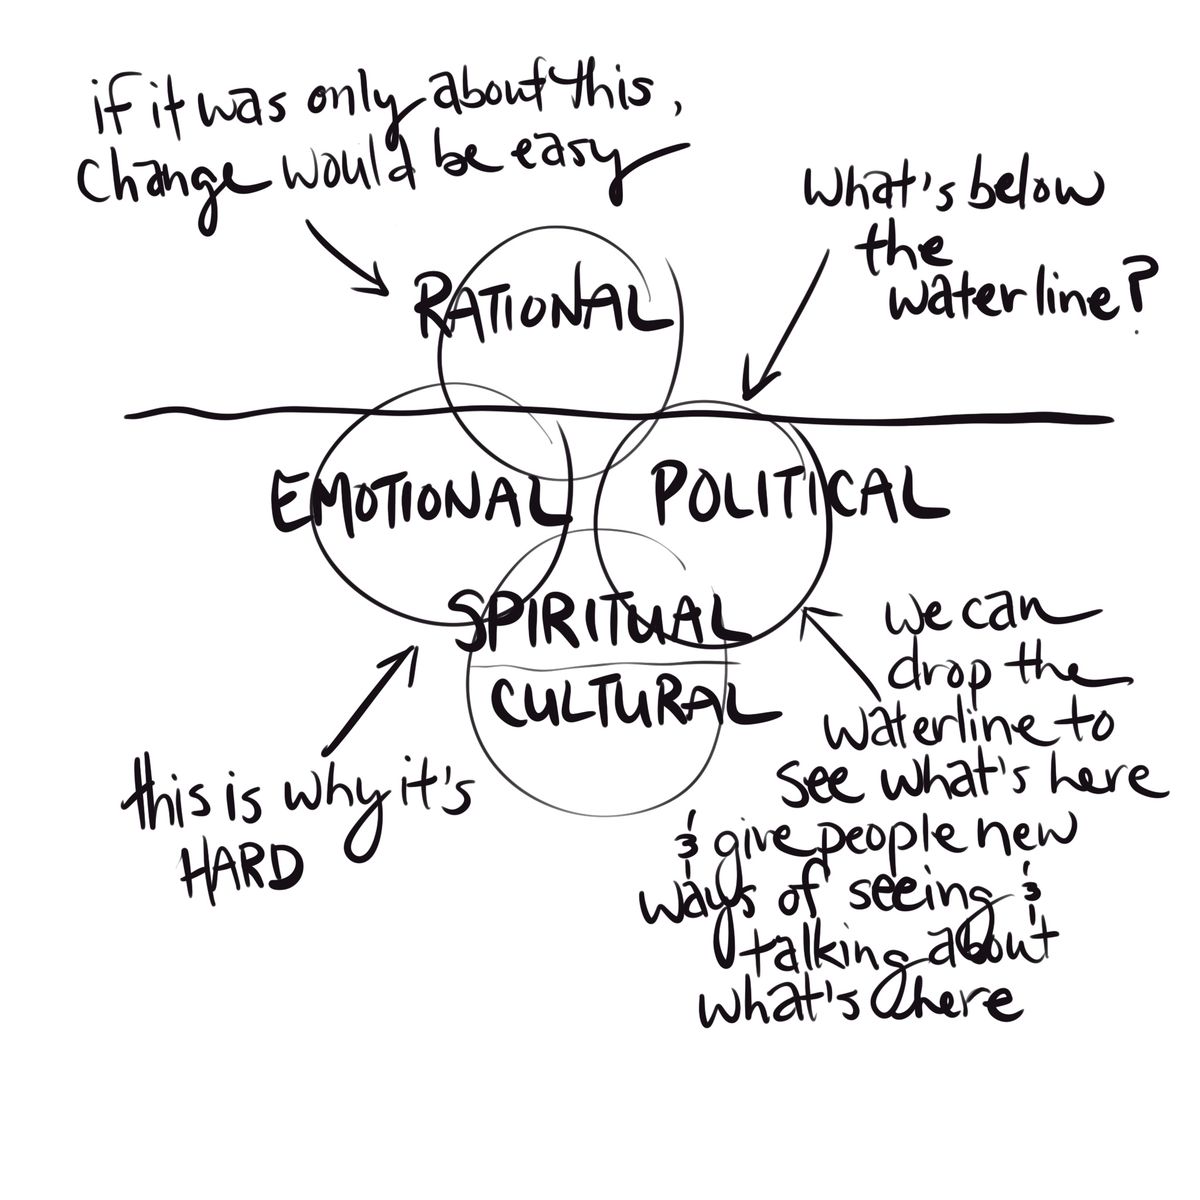 if it was only about this,
change would be easy
What's below
the
waterline?
RATIONAL
EMOTIONAL
POLITICAL
SPIRITUAL
CULTURAL
this is why it's
HARD
we can
drop the
waterline to
see what's here
& give people new
ways of seeing &
talking about
what's here